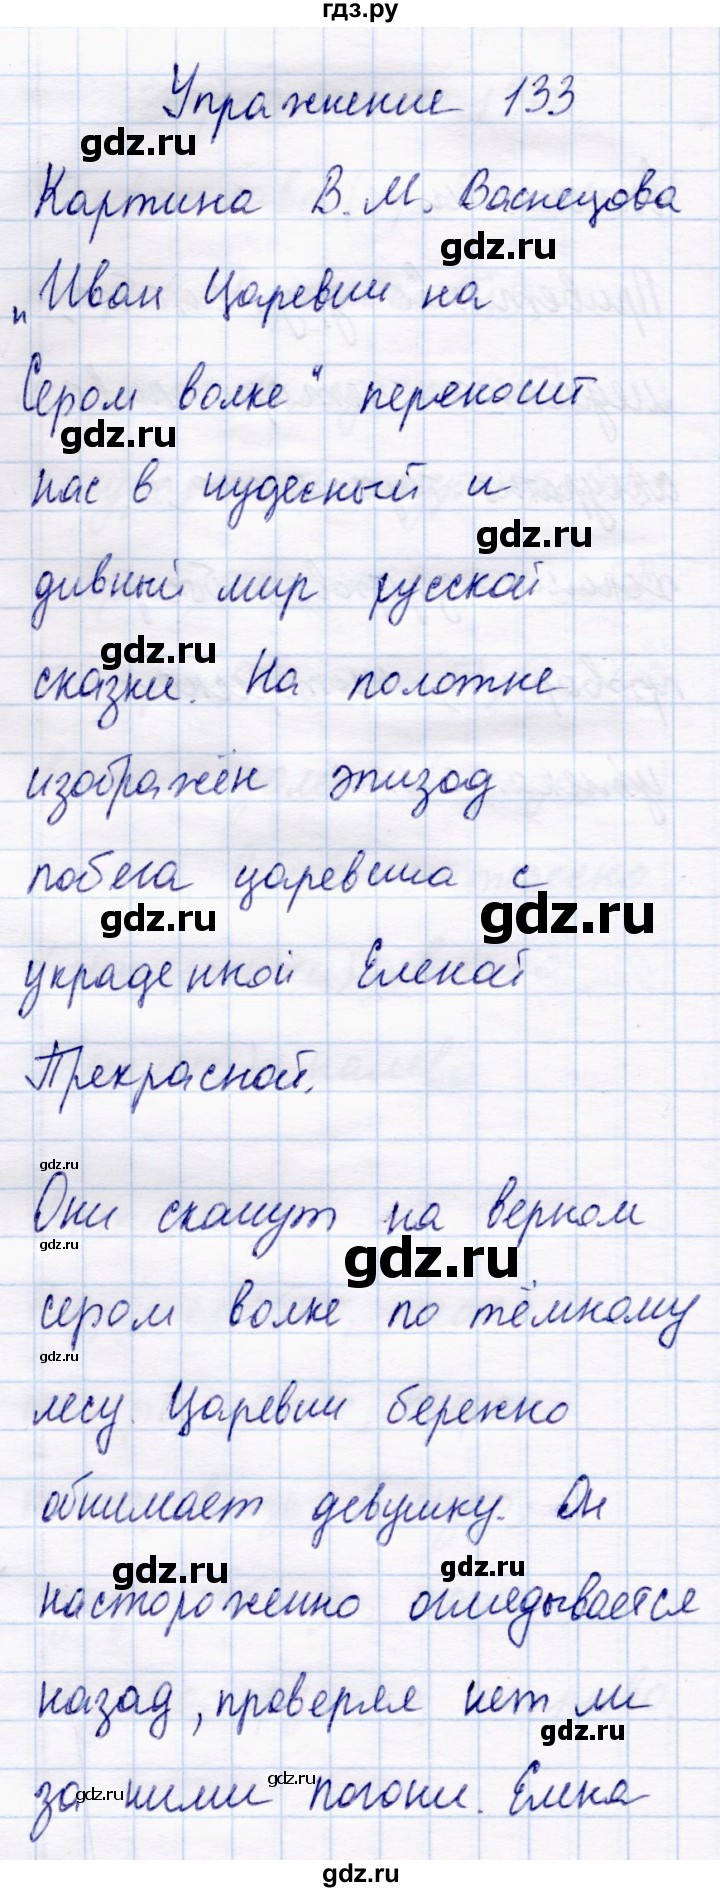 гдз.ру
Упражнение 133
gdz.ru
Картина В. М. Васнецова
gdz.ru
„Иван Царевич на
Сером волке“ переносит
gdz.ru
нас в чудесный и
gdz.ru
дивный мир русской
gdz.ru
сказки. На полотне
изображён эпизод
побега царевича с
gdz.ru gdz.ru
украденной Еленой
Прекрасной.
gdz.ru
Они скачут на верном
gdz.ru gdz.ru
сером волке по тёмному
gdz.ru
лесу. Царевич бережно
обнимает девушку. Он
gdz.ru gdz.ru
настороженно оглядывается
назад, проверяя нет ли
gdz.ru
за ними погони. Елена
gdz.ru gdz.ru
gdz.ru